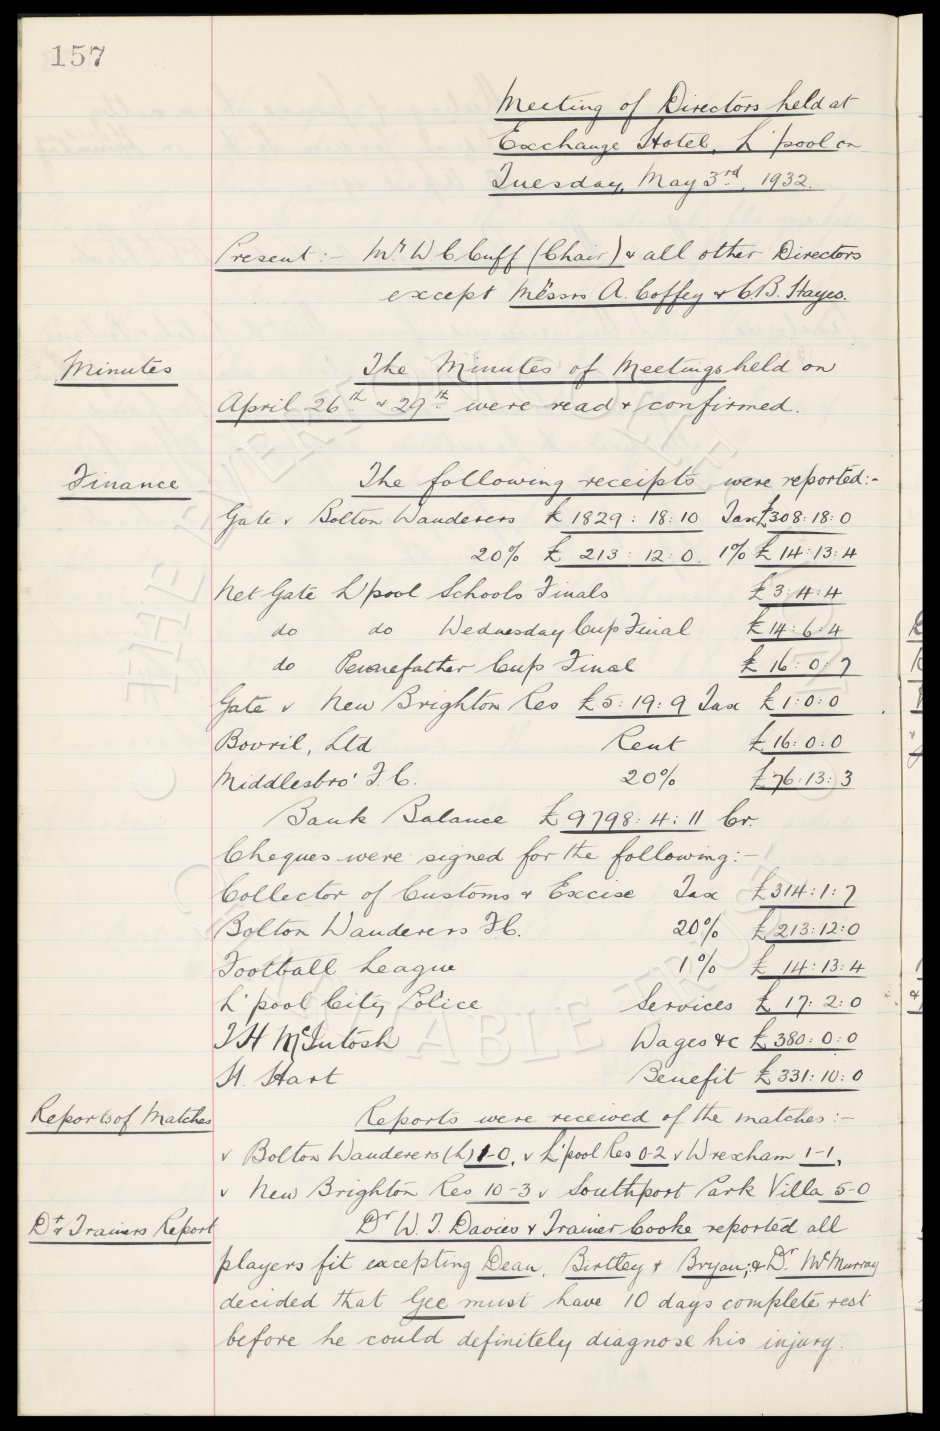 157
Meeting of Directors held at
Exchange Hotel, L'pool on
Tuesday, May 3rd, 1932.
Present :- Mr. W C Cuff (Chair) & all other Directors
except Messrs A. Coffey & C.B. Hayes.
Minutes The Minutes of Meetings held on
April 26th & 29th were read & confirmed.
Finance The following receipts were reported:-
Gate v Bolton Wanderers £1829:18:10 Tax £308:18:0
20% £213:12:0. 1% £14:13:4
Net Gate L'pool Schools Finals £3:4:4
do do Wednesday Cup Final £14:6:4
do Pennefather Cup Final £16:0:7
Gate v New Brighton Res £5:19:9 Tax £1:0:0
Bovril, Ltd Rent £16:0:0
Middlesbro' F.C. 20% £76:13:3
Bank Balance £9798:4:11 Cr.
Cheques were signed for the following:-
Collector of Customs & Excise Tax £314:1:7
Bolton Wanderers F.C. 20% £213:12:0
Football League 1% £14:13:4
L'pool City Police Services £17:2:0
T H McIntosh Wages &c £380:0:0
H. Hart Benefit £331:10:0
Reports of Matches Reports were received of the matches:-
v Bolton Wanderers (L) 1-0, v L'pool Res 0-2 v Wrexham 1-1,
v New Brighton Res 10-3 v Southport Park Villa 5-0
Dr & Trainers Report Dr W. T. Davies & Trainer Cooke reported all
players fit excepting Dean, Birtley & Bryan; & Dr. McMurray
decided that Gee must have 10 days complete rest
before he could definitely diagnose his injury.